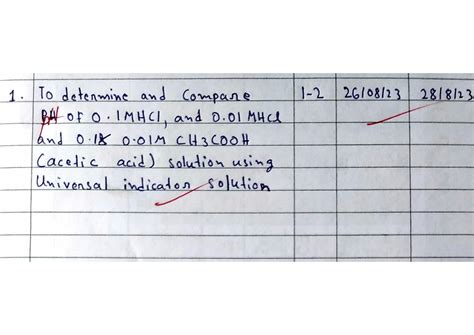 1. To determine and Compare 1-2 26/08/23 28/8/23
pH of 0.1MHCl, and 0.01 MHCl
and 0.1 0.01M CH3COOH
(acetic acid) solution using
Universal indicator solution